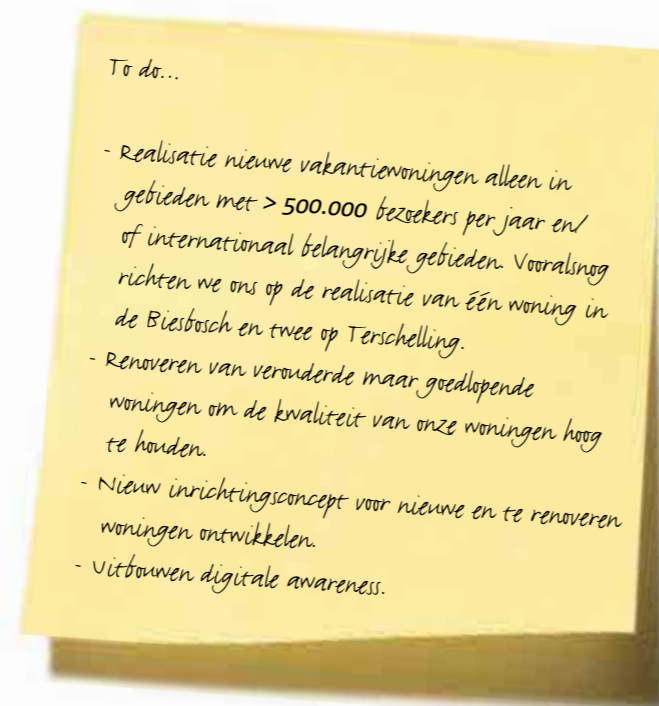 To do...
- Realisatie nieuwe vakantiewoningen alleen in
gebieden met > 500.000 bezoekers per jaar en/
of internationaal belangrijke gebieden. Vooralsnog
richten we ons op de realisatie van één woning in
de Biesbosch en twee op Terschelling.
- Renoveren van verouderde maar goedlopende
woningen om de kwaliteit van onze woningen hoog
te houden.
- Nieuw inrichtingsconcept voor nieuwe en te renoveren
woningen ontwikkelen.
- Uitbouwen digitale awareness.